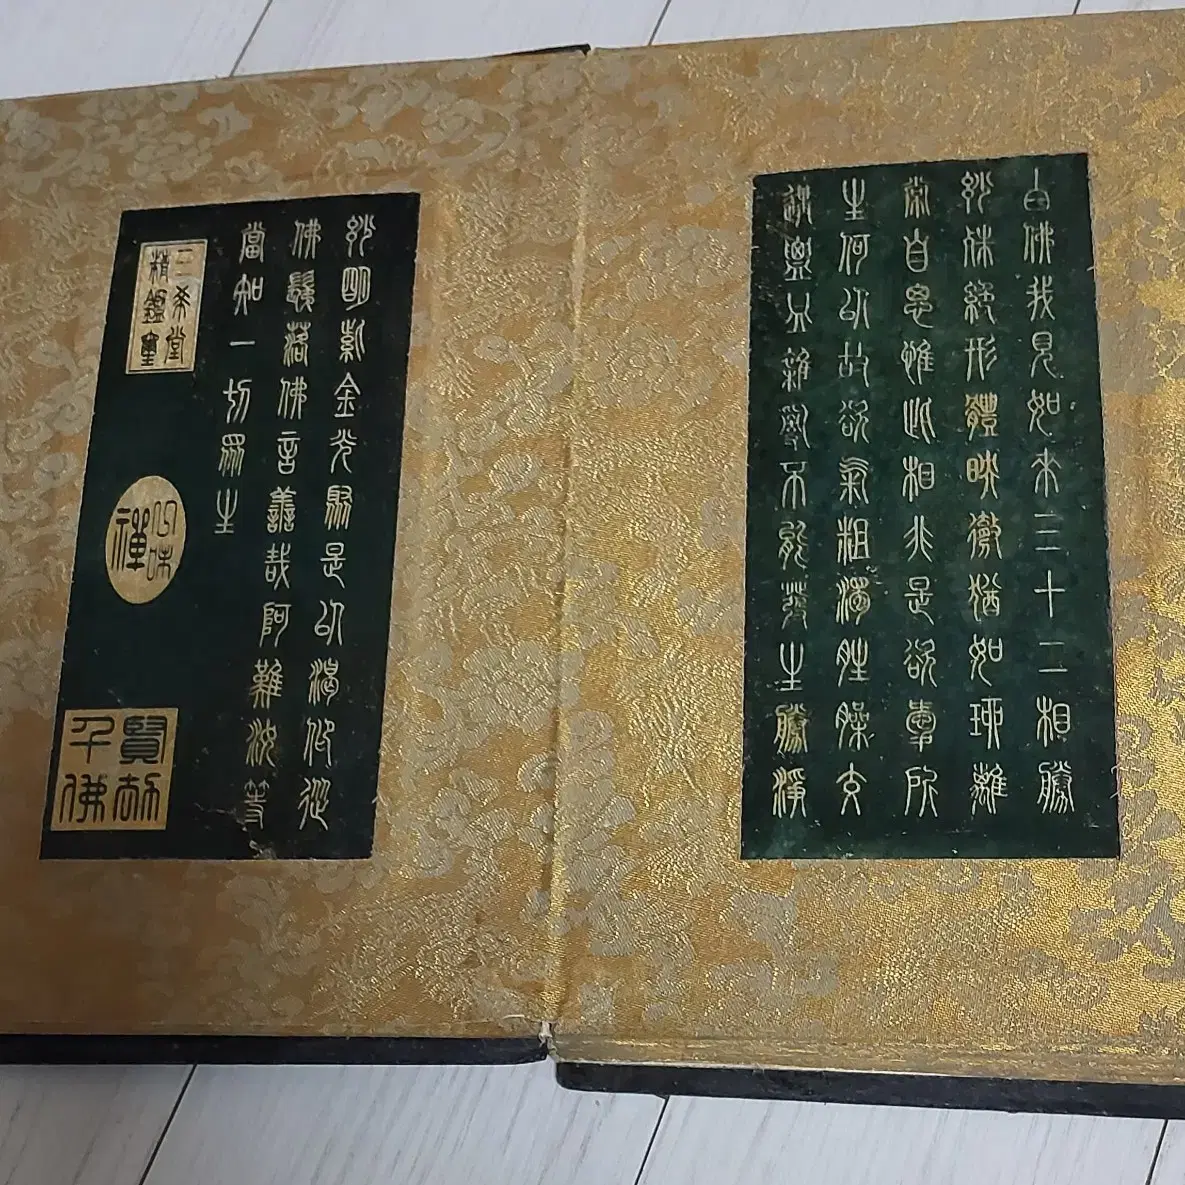 白佛我見如來三十二相勝
妙殊絕形體映徹猶如琉離
常自思惟此相非是欲愛所
生何以故欲氣粗濁腥臊交
遘血雜亂不能發生勝淨
妙明紫金光聚是以渴仰從
佛鬀落佛言善哉阿難汝等
當知一切眾生
三希堂
精鑑璽
味禪
賢劫
千佛